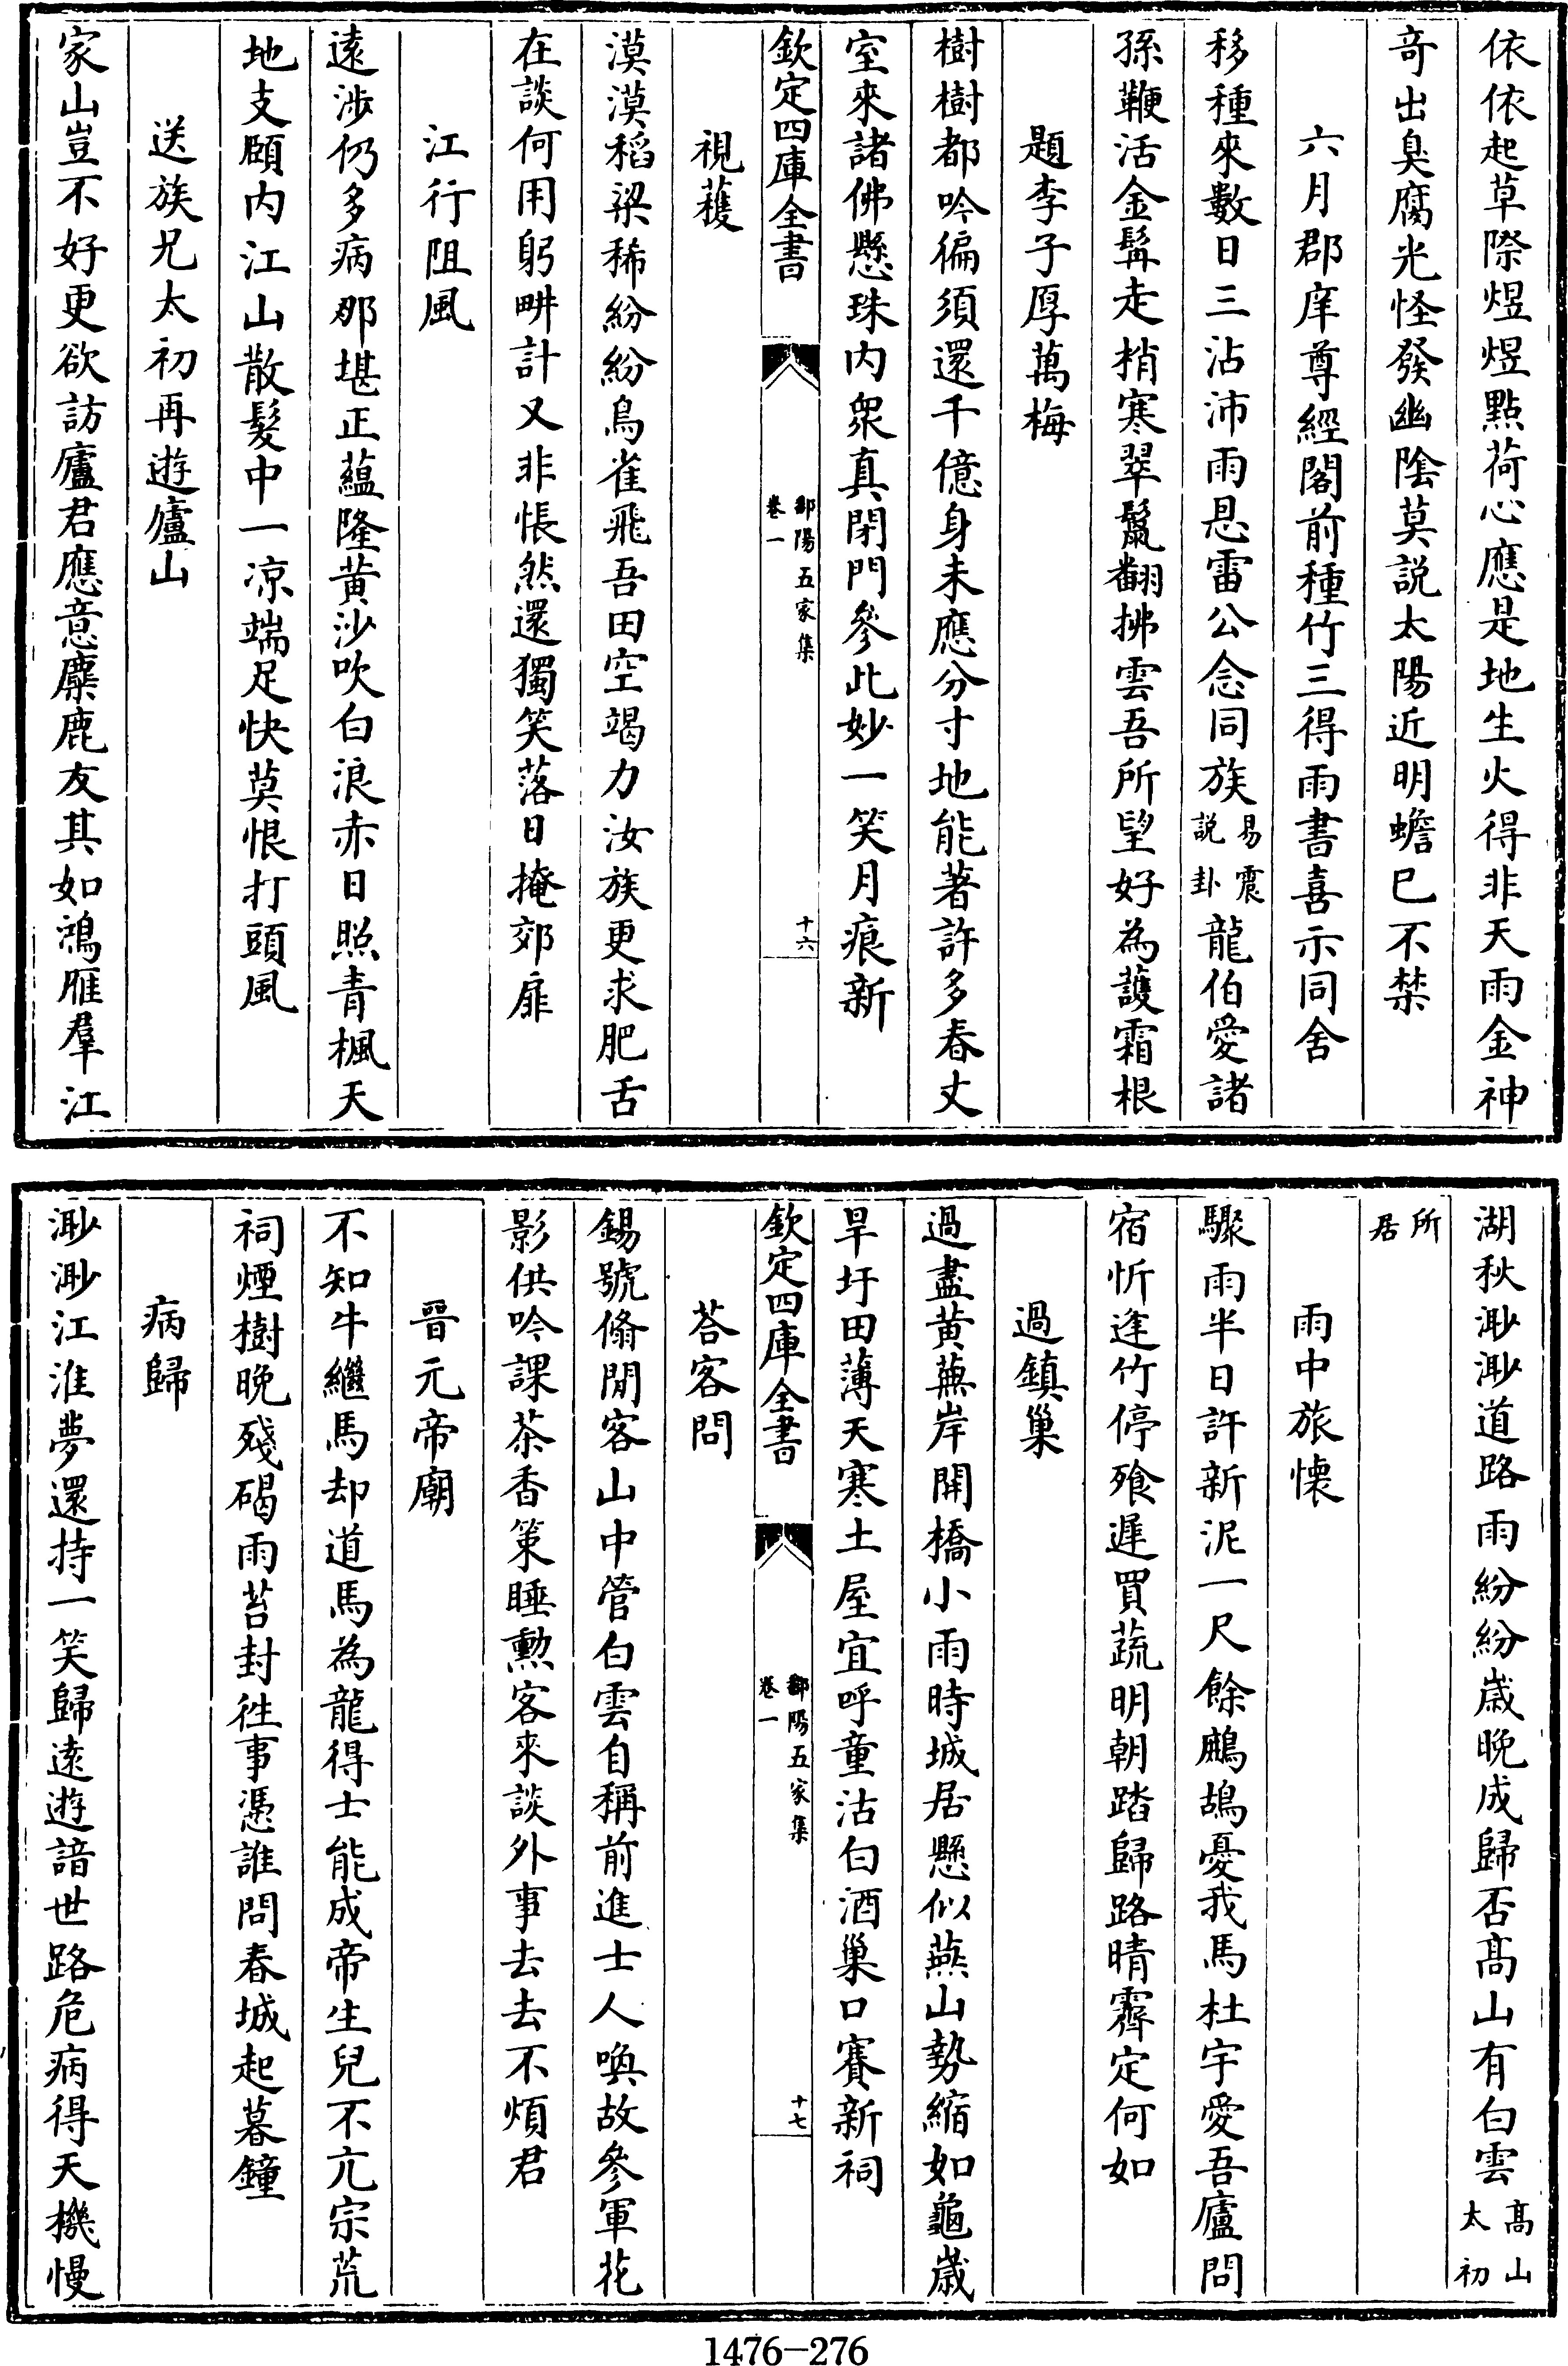 依依起草際煜煜點荷心應是地生火得非天雨金神
奇出臭腐光怪發幽陰莫説太陽近明蟾已不禁
六月郡庠尊經閣前種竹三得雨書喜示同舍
移種來數日三沾沛雨恩雷公念同族易震説卦龍伯愛諸
孫鞭活金髯走梢寒翠鬛翻拂雲吾所望好為護霜根
題李子厚萬梅
樹樹都吟徧須還千億身未應分寸地能著許多春丈
室來諸佛懸珠内衆真閉門參此妙一笑月痕新
欽定四庫全書
鄱陽五家集
卷一
十六
視穫
漠漠稻粱稀紛紛鳥雀飛吾田空竭力汝族更求肥舌
在談何用躬畊計又非悵然還獨笑落日掩郊扉
江行阻風
遠涉仍多病那堪正蘊隆黄沙吹白浪赤日照青楓天
地支頤内江山散髮中一凉端足快莫恨打頭風
送族兄太初再遊廬山
家山豈不好更欲訪廬君應意麋鹿友其如鴻雁羣江
湖秋渺渺道路雨紛紛歳晩成歸否髙山有白雲髙山太初
所居
雨中旅懷
驟雨半日許新泥一尺餘鷓鴣憂我馬杜宇愛吾廬問
宿忻逢竹停飱遲買蔬明朝踏歸路晴霽定何如
過鎮巢
過盡黄蕪岸開橋小雨時城居懸似燕山勢縮如龜歳
旱圩田薄天寒土屋宜呼童沽白酒巢口賽新祠
欽定四庫全書
鄱陽五家集
卷一
十七
荅客問
錫號脩閒客山中管白雲自稱前進士人喚故參軍花
影供吟課茶香策睡勲客來談外事去去不煩君
晉元帝廟
不知牛繼馬却道馬為龍得士能成帝生兒不亢宗荒
祠煙樹晚殘碣雨苔封徃事憑誰問春城起暮鐘
病歸
渺渺江淮夢還持一笑歸遠遊諳世路危病得天機慢
1476-276